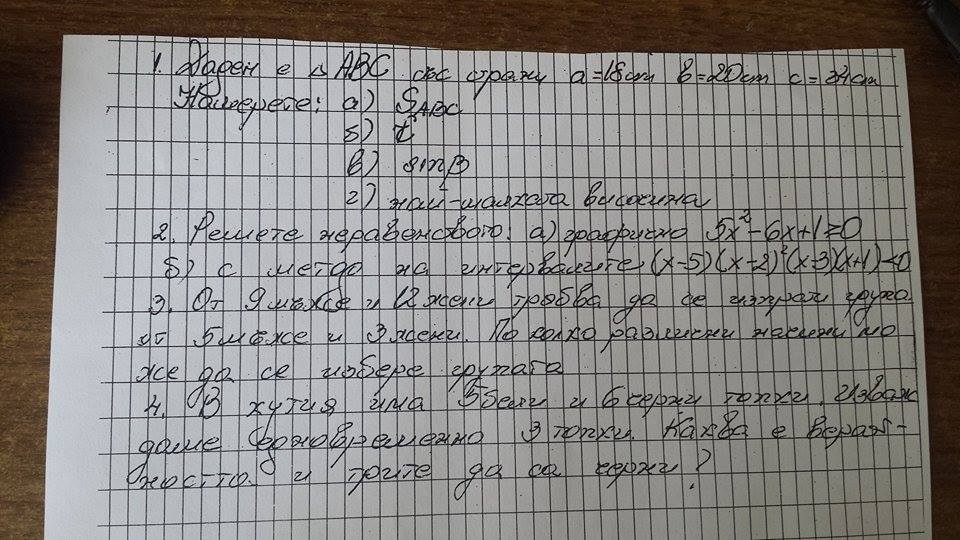 1. Даден е △ ABC със страни a=18cm b=20cm c=34cm
Намерете: а) S_ABC
б) r
в) sinβ
г) най-малката височина
2. Решете неравенството: а) графично 5x²-6x+1≥0
б) с метода на интервалите (x-5)(x-2)²(x-3)(x+1)<0
3. От 9 мъже и 12 жени трябва да се избрат група
от 5 мъже и 3 жени. По колко различни начини мо
же да се избере групата
4. В кутия има 5 бели и 6 черни топки. Изваж
даме едновременно 3 топки. Каква е вероят-
ността и трите да са черни?